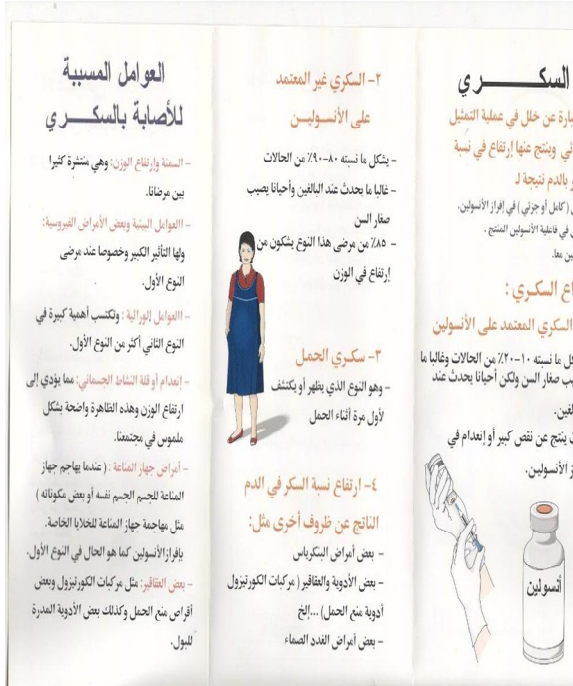 السكـــــري
بارة عن خلل في عملية التمثيل
ني وينتج عنها إرتفاع في نسبة
ر بالدم نتيجة لـ
( كامل أو جزئي ) في إفراز الأنسولين.
في فاعلية الأنسولين المنتج .
ين معا.
اع السكري :
السكري المعتمد على الأنسولين
كل ما نسبته ١٠-٢٠٪ من الحالات وغالبا ما
يب صغار السن ولكن أحيانا يحدث عند
لغين.
ينتج عن نقص كبير أو إنعدام في
ز الأنسولين.
أنسولين
٢- السكري غير المعتمد
على الأنسوليـن
- يشكل ما نسبته ٨٠-٩٠٪ من الحالات
- غالبا ما يحدث عند البالغين وأحيانا يصيب
صغار السن
- ٨٥٪ من مرضى هذا النوع يشكون من
إرتفاع في الوزن
٣- سكـري الحمل
- وهو النوع الذي يظهر أو يكتشف
لأول مرة أثناء الحمل
٤- ارتفاع نسبة السكر في الدم
الناتج عن ظروف أخرى مثل:
- بعض أمراض البنكرياس
- بعض الأدوية والعقاقير ( مركبات الكورتيزول
أدوية منع الحمل) ...إلخ
- بعض أمراض الغدد الصماء
العوامل المسببة
للأصابة بالسكـــري
- السمنة وإرتفاع الوزن: وهي منتشرة كثيرا
بين مرضانا.
- االعوامل البيئية وبعض الأمراض الفيروسية:
ولها التأثير الكبير وخصوصا عند مرضى
النوع الأول.
- االعوامل الوراثية : وتكتسب أهمية كبيرة في
النوع الثاني أكثر من النوع الأول.
- إنعدام أو قلة النشاط الجسماني: مما يؤدي إلى
ارتفاع الوزن وهذه الظاهرة واضحة بشكل
ملموس في مجتمعنا.
- أمراض جهاز المناعة : ( عندما يهاجم جهاز
المناعة للجسم الجسم نفسه أو بعض مكوناته )
مثل مهاجمة جهاز المناعة للخلايا الخاصة.
بإفراز الأنسولين كما هو الحال في النوع الأول.
- بعض العقاقير: مثل مركبات الكورتيزول وبعض
أقراص منع الحمل وكذلك بعض الأدوية المدرة
للبول.